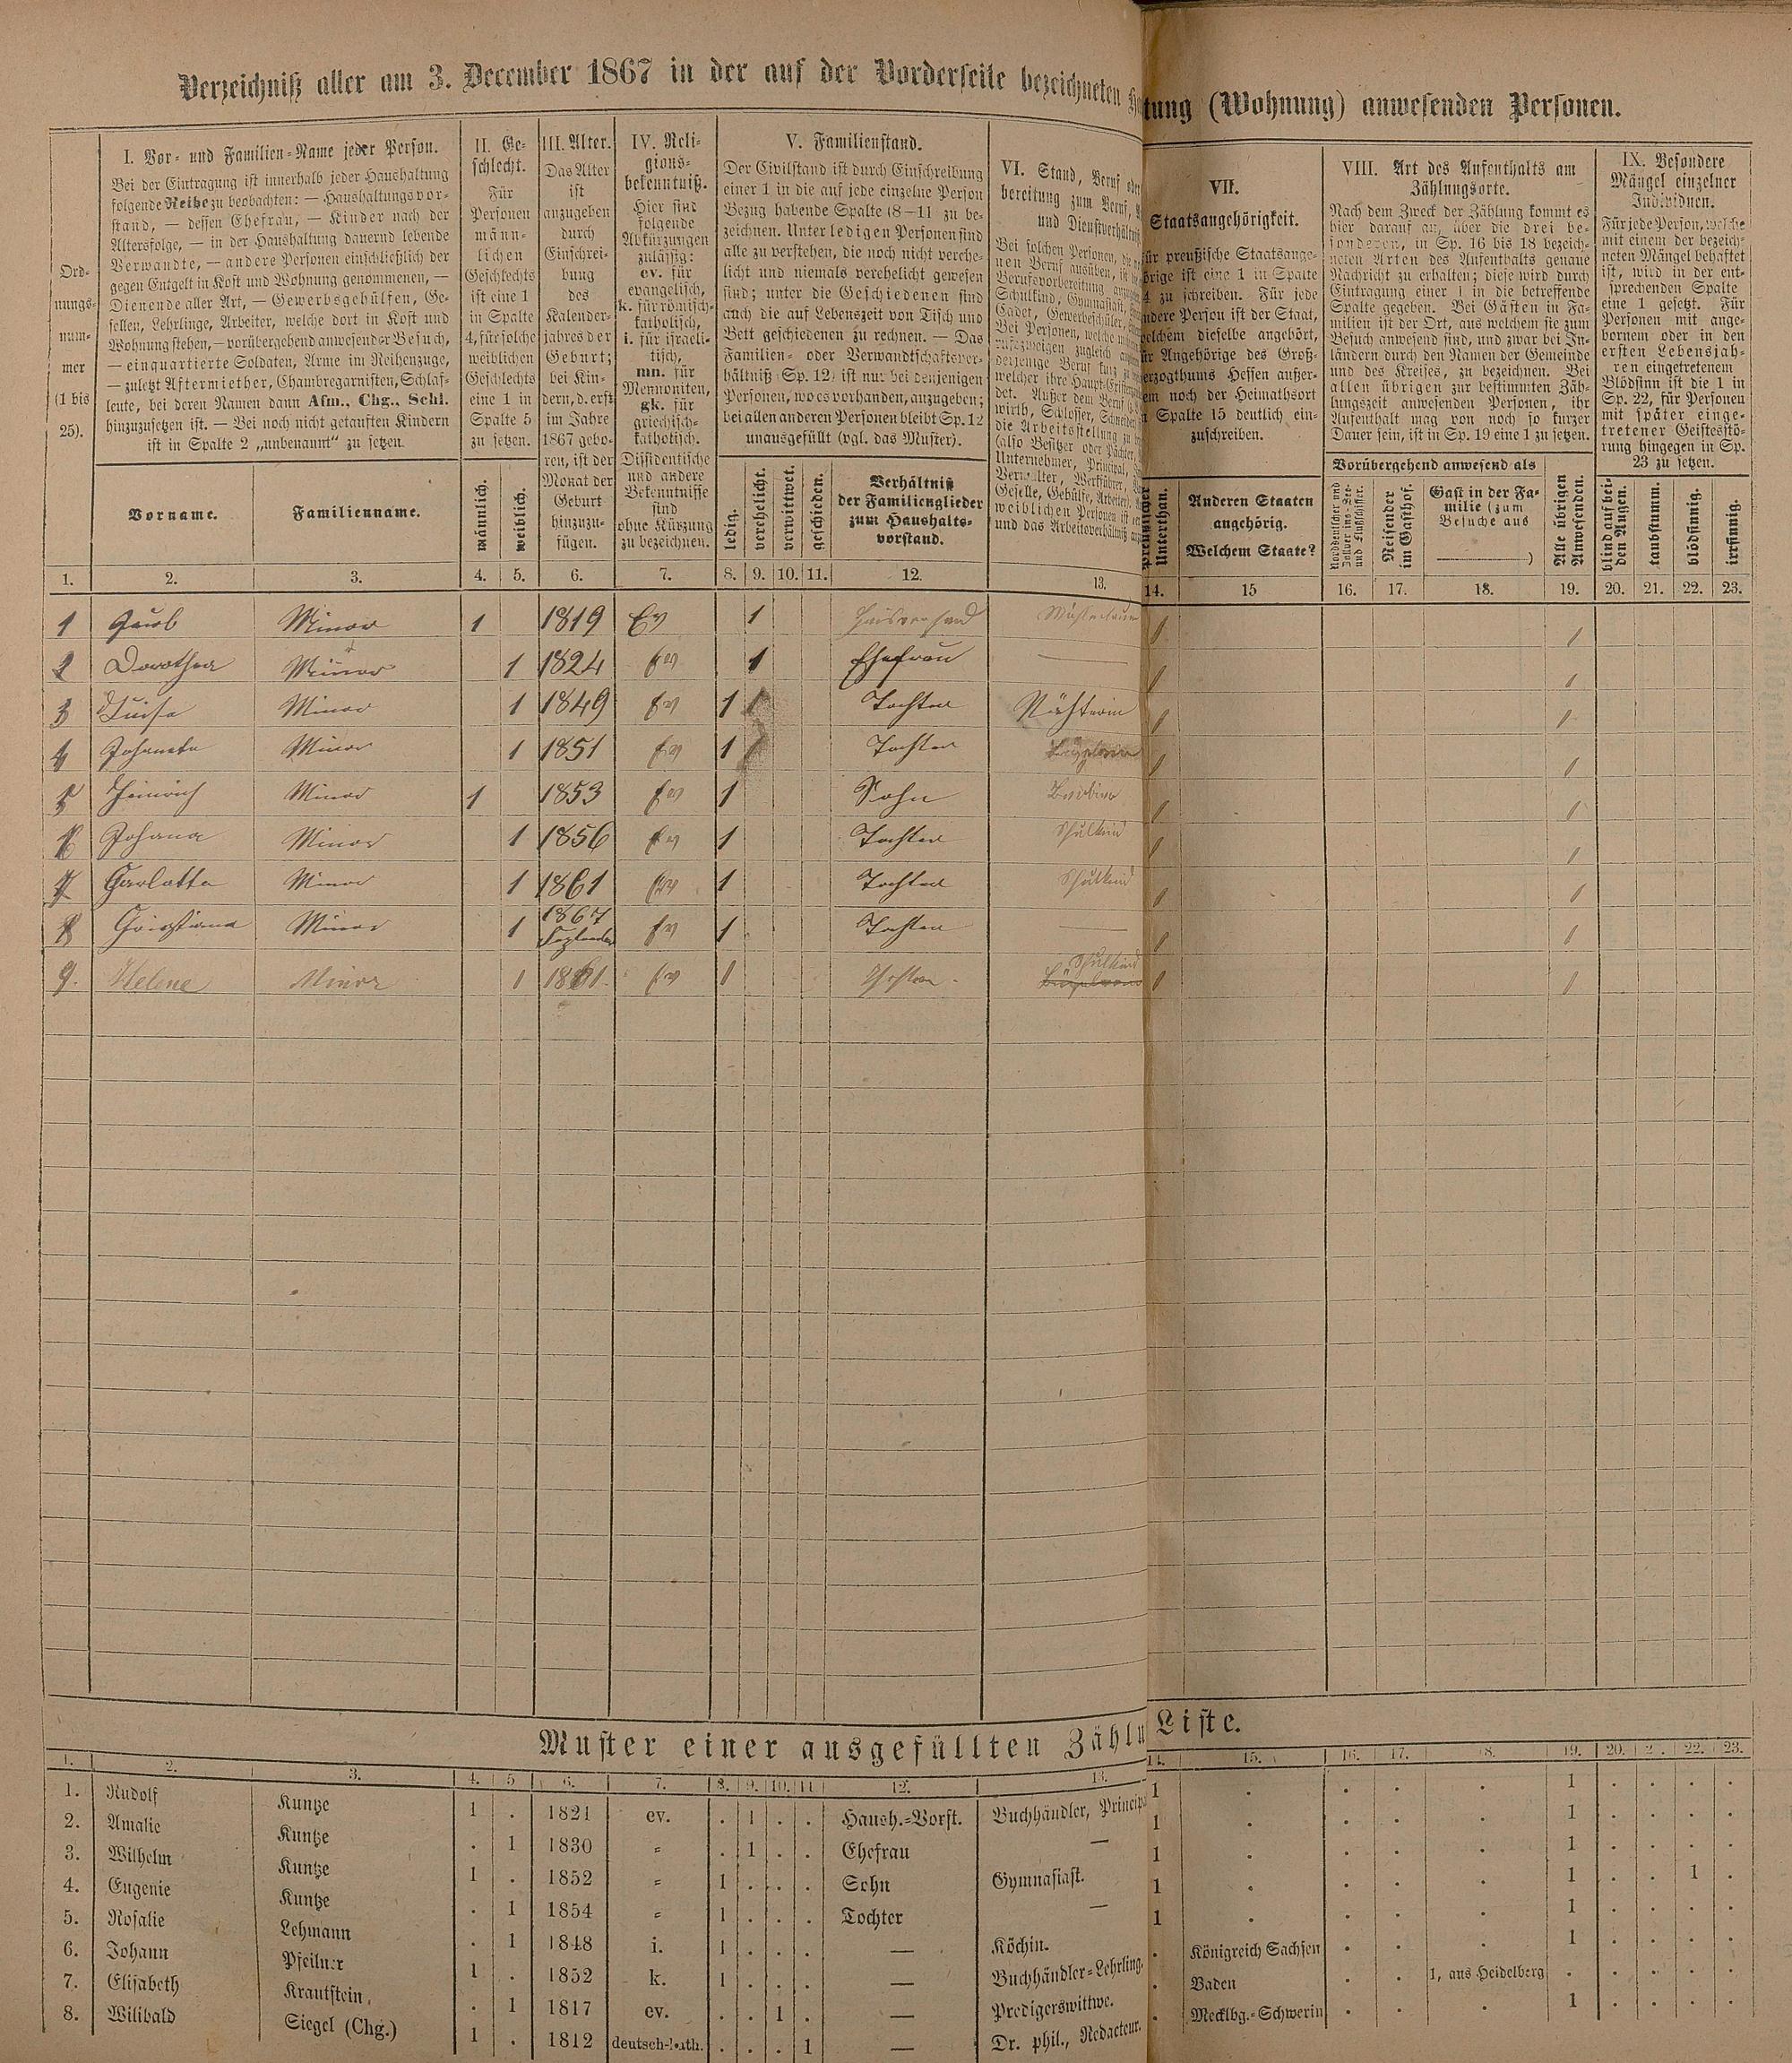 Verzeichniß aller am 3. December 1867 in der auf der Vorderseite bezeichneten
tung (Wohnung) anwesenden Personen.
Ord-
nungs-
num-
mer
(1 bis
25).
I. Vor- und Familien-Name jeder Person.
Bei der Eintragung ist innerhalb jeder Haushaltung
folgende Reihe zu beobachten: — Haushaltungsvor-
stand, — dessen Ehefrau, — Kinder nach der
Altersfolge, — in der Haushaltung dauernd lebende
Verwandte, — andere Personen einschließlich der
gegen Entgelt in Kost und Wohnung genommenen, —
Dienende aller Art, — Gewerbsgehülfen, Ge-
sellen, Lehrlinge, Arbeiter, welche dort in Kost und
Wohnung stehen, — vorübergehend anwesender Besuch,
— einquartierte Soldaten, Arme im Reihenzuge,
— zuletzt Aftermiether, Chambregarnisten, Schlaf-
leute, bei deren Namen dann Afm., Chg., Schl.
hinzuzusetzen ist. — Bei noch nicht getauften Kindern
ist in Spalte 2 „unbenannt“ zu setzen.
Vorname.
Familienname.
II. Ge-
schlecht.
Für
Personen
männ-
lichen
Geschlechts
ist eine 1
in Spalte
4, für solche
weiblichen
Geschlechts
eine 1 in
Spalte 5
zu setzen.
männlich.
weiblich.
III. Alter.
Das Alter
ist
anzugeben
durch
Einschrei-
bung
des
Kalender-
jahres der
Geburt;
bei Kin-
dern, d. erst
im Jahre
1867 gebo-
ren, ist der
Monat der
Geburt
hinzuzu-
fügen.
IV. Reli-
gions-
bekenntniß.
Hier sind
folgende
Abkürzungen
zulässig:
ev. für
evangelisch,
k. für römisch-
katholisch,
i. für israeli-
tisch,
mn. für
Mennoniten,
gk. für
griechisch-
katholisch.
Dissidentische
und andere
Bekenntnisse
sind
ohne Kürzung
zu bezeichnen.
V. Familienstand.
Der Civilstand ist durch Einschreibung
einer 1 in die auf jede einzelne Person
Bezug habende Spalte (8—11 zu be-
zeichnen. Unter ledigen Personen sind
alle zu verstehen, die noch nicht verehe-
licht und niemals verehelicht gewesen
sind; unter die Geschiedenen sind
auch die auf Lebenszeit von Tisch und
Bett geschiedenen zu rechnen. — Das
Familien- oder Verwandtschaftsver-
hältniß (Sp. 12) ist nur bei denjenigen
Personen, wo es vorhanden, anzugeben;
bei allen anderen Personen bleibt Sp. 12
unausgefüllt (vgl. das Muster).
ledig.
verehelicht.
verwittwet.
geschieden.
Verhältniß
der Familienglieder
zum Haushalts-
vorstand.
VI. Stand, Beruf oder
bereitung zum Beruf,
und Dienstverhältniß
VII.
Staatsangehörigkeit.
für preußische Staatsange-
hörige ist eine 1 in Spalte
zu schreiben. Für jede
andere Person ist der Staat,
welchem dieselbe angehört,
für Angehörige des Groß-
herzogthums Hessen außer-
dem noch der Heimathsort
Spalte 15 deutlich ein-
zuschreiben.
Unterthan.
Anderen Staaten
angehörig.
Welchem Staate?
VIII. Art des Aufenthalts am
Zählungsorte.
Nach dem Zweck der Zählung kommt es
hier darauf an, über die drei be-
sonderen, in Sp. 16 bis 18 bezeich-
neten Arten des Aufenthalts genaue
Nachricht zu erhalten; diese wird durch
Eintragung einer 1 in die betreffende
Spalte gegeben. Bei Gästen in Fa-
milien ist der Ort, aus welchem sie zum
Besuch anwesend sind, und zwar bei In-
ländern durch den Namen der Gemeinde
und des Kreises, zu bezeichnen. Bei
allen übrigen zur bestimmten Zäh-
lungszeit anwesenden Personen, ihr
Aufenthalt mag von noch so kurzer
Dauer sein, ist in Sp. 19 eine 1 zu setzen.
Vorübergehend anwesend als
Reisender
im Gasthof.
Gast in der Fa-
milie (zum
Besuche aus
)
Alle übrigen
Anwesenden.
IX. Besondere
Mängel einzelner
Individuen.
Für jede Person, welche
mit einem der bezeich-
neten Mängel behaftet
ist, wird in der ent-
sprechenden Spalte
eine 1 gesetzt. Für
Personen mit ange-
bornem oder in den
ersten Lebensjah-
ren eingetretenem
Blödsinn ist die 1 in
Sp. 22, für Personen
mit später einge-
tretener Geistesstö-
rung hingegen in Sp.
23 zu setzen.
blind auf bei-
den Augen.
taubstumm.
blödsinnig.
irrsinnig.
1. 2. 3. 4. 5. 6. 7. 8. 9. 10. 11. 12. 13. 14. 15 16. 17. 18. 19. 20. 21. 22. 23.
1 Jacob Minor 1 1819 Ev 1 1 1
2 Dorothea Minor 1 1824 Ev 1 Ehefrau — 1 1
3 Luise Minor 1 1849 Ev 1 Tochter Nähterin 1 1
4 Johaneta Minor 1 1851 Ev 1 Tochter 1 1
5 Heinrich Minor 1 1853 Ev 1 Sohn 1 1
6 Johana Minor 1 1856 Ev 1 Tochter Schulkind 1 1
7 Carlotta Minor 1 1861 Ev 1 Tochter Schulkind 1 1
8 Christiana Minor 1 1867 September Ev 1 Tochter — 1 1
9. Helene Minor 1 1861. Ev 1 Tochter. Schulkind 1 1
Muster einer ausgefüllten Zählu Liste.
1. 2. 3. 4. 5 6. 7. 8. 9. 10. 11 12. 13. 14. 15. 16. 17. 18. 19. 20. 21. 22. 23.
1. Rudolf Kuntze 1 . 1821 ev. . 1 . . Haush.-Vorst. Buchhändler, Princip 1 . . . . 1 . . . .
2. Amalie Kuntze . 1 1830 „ . 1 . . Ehefrau — 1 . . . . 1 . . . .
3. Wilhelm Kuntze 1 . 1852 „ 1 . . . Sohn Gymnasiast. 1 . . . . 1 . . . .
4. Eugenie Kuntze . 1 1854 „ 1 . . . Tochter — 1 . . . . 1 . . 1 .
5. Rosalie Lehmann . 1 1848 i. 1 . . . — Köchin. 1 . . . . 1 . . . .
6. Johann Pfeilner 1 . 1852 k. 1 . . . — Buchhändler-Lehrling. . Königreich Sachsen . . . 1 . . . .
7. Elisabeth Krautstein . 1 1817 ev. . . 1 . — Predigerswittwe. . Baden . . 1, aus Heidelberg . . . . .
8. Wilibald Siegel (Chg.) 1 . 1812 deutsch-kath. . . . 1 — Dr. phil., Redacteur. . Mecklbg.-Schwerin . . . 1 . . . .